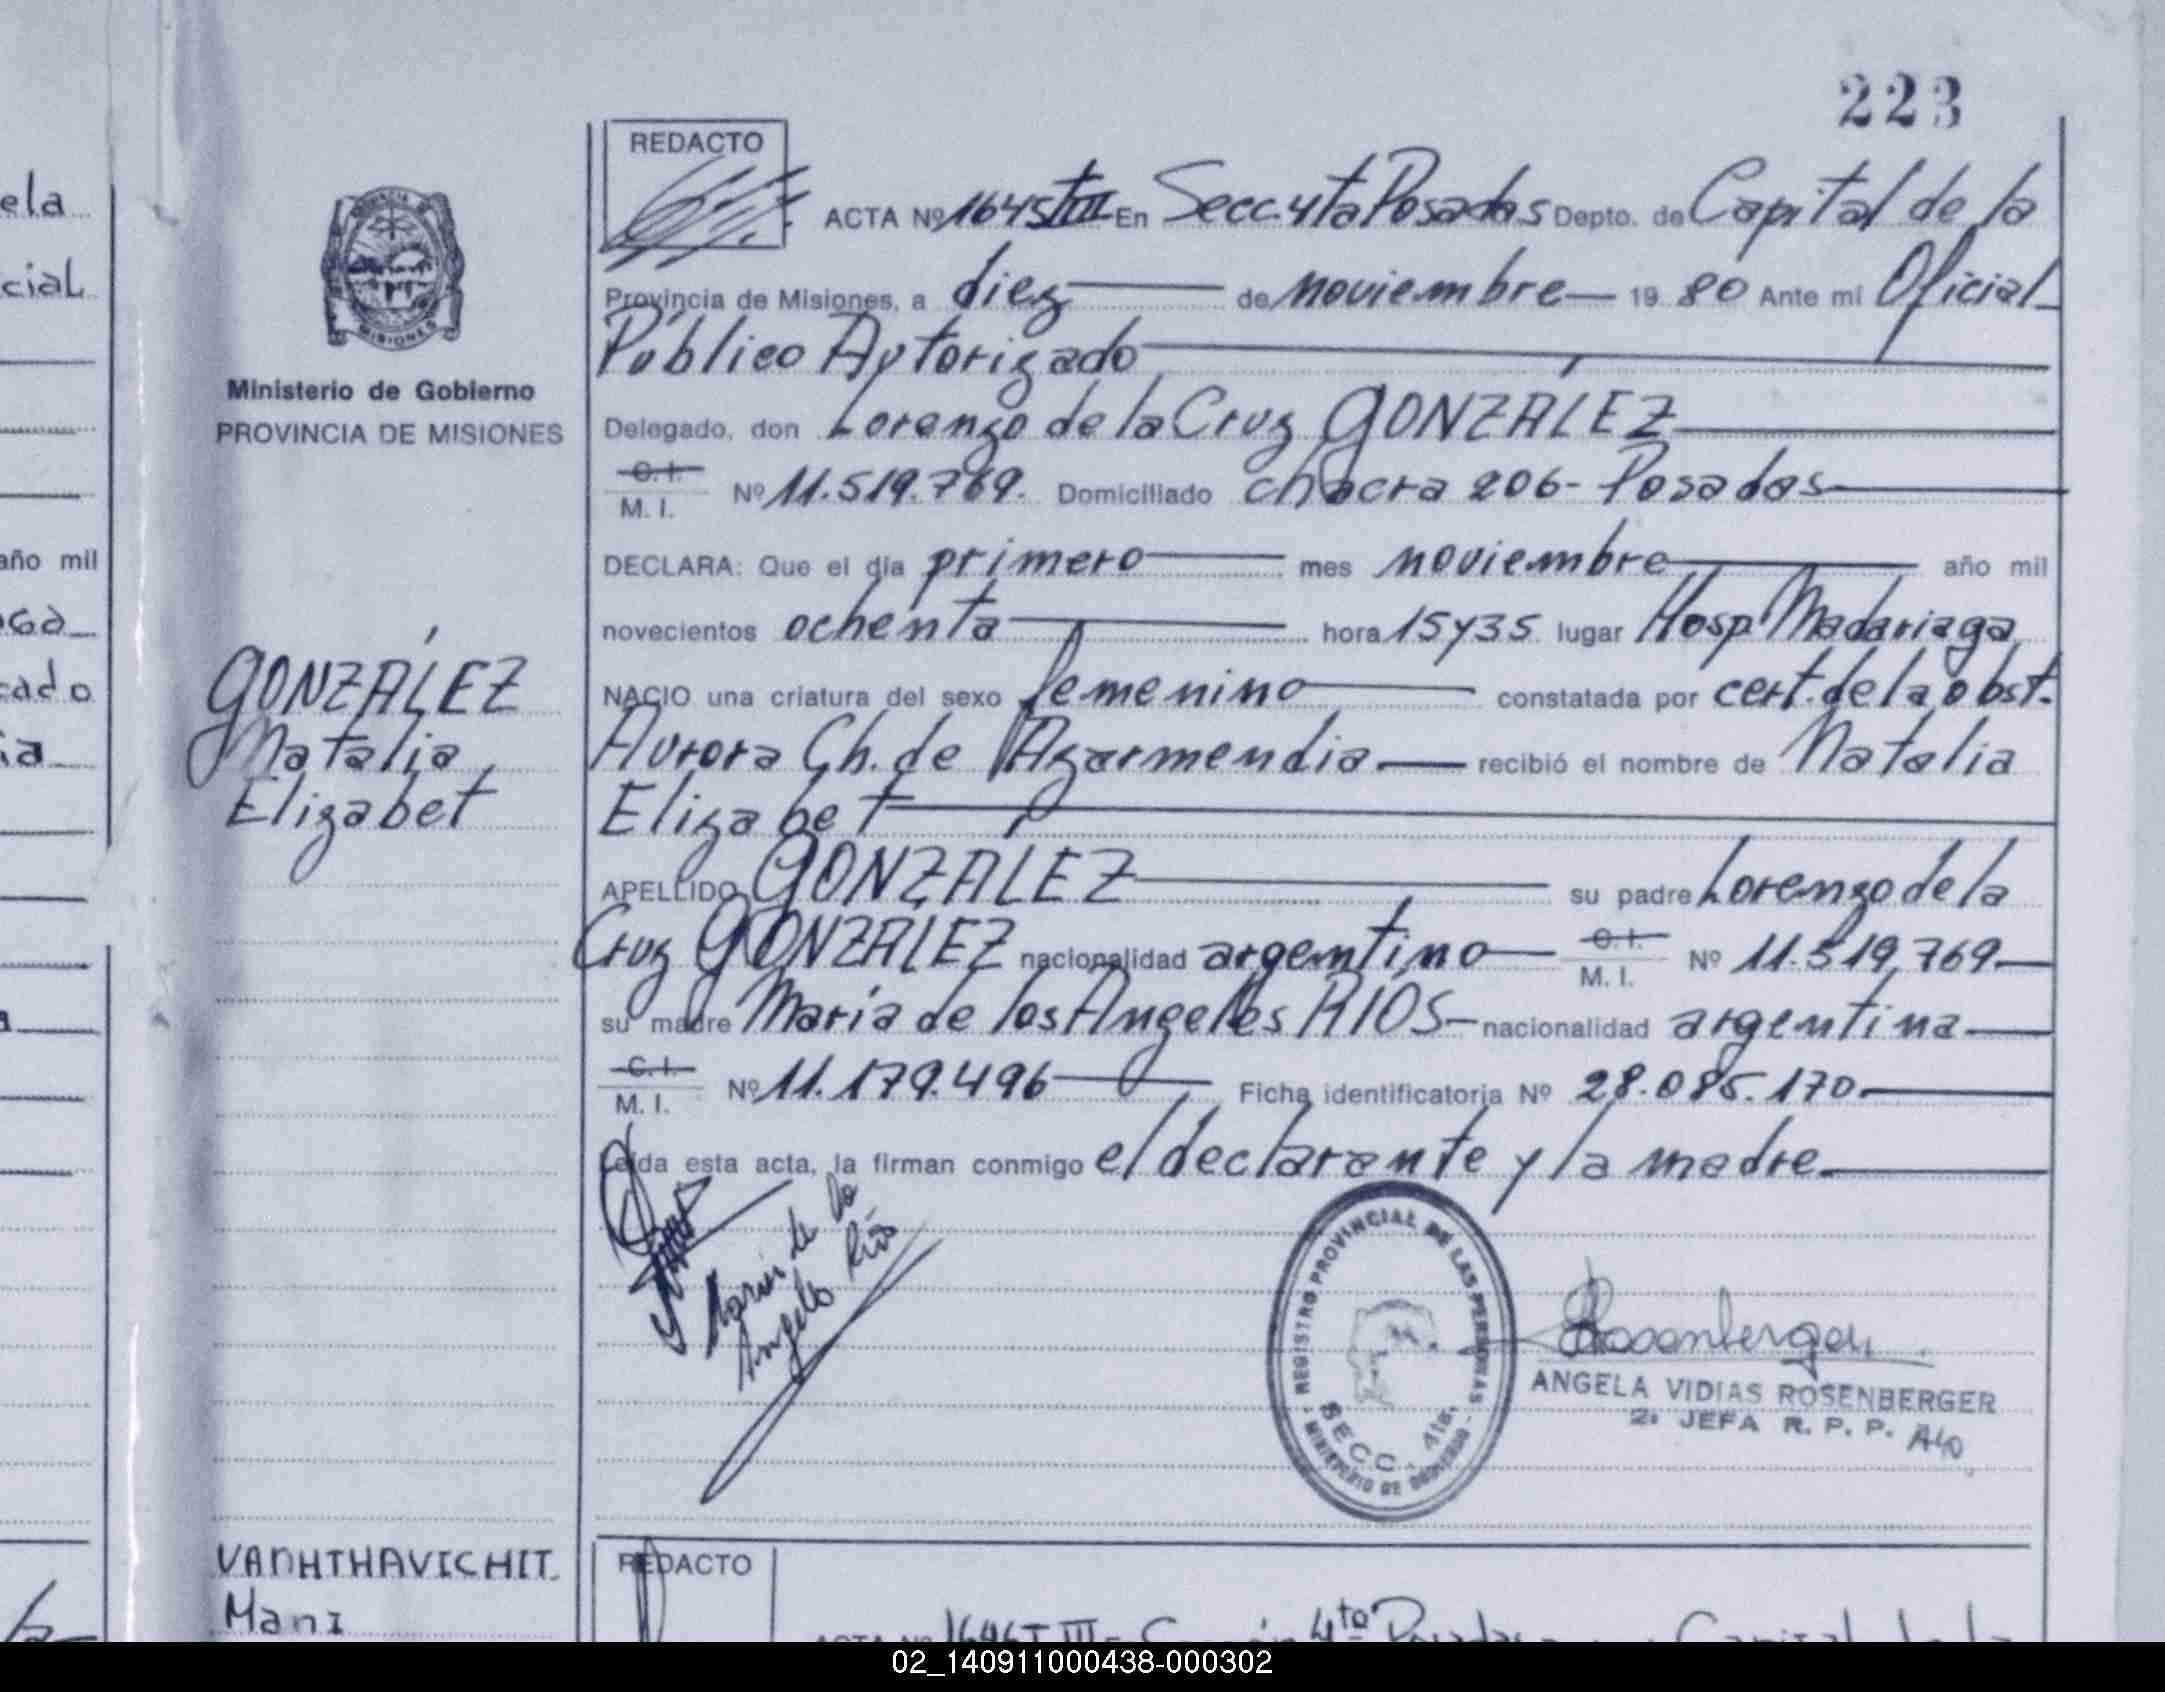 223
ela
cial
año mil
cado
REDACTO
ACTA Nº 1645 T III En Secc. 4ta Posadas Depto. de Capital de la
Provincia de Misiones, a diez de noviembre 19 80 Ante mi Oficial
Público Autorizado
Delegado, don Lorenzo de la Cruz GONZÁLEZ
C. I.
M. I. Nº 11.519.769. Domiciliado chacra 206- Posadas
DECLARA: Que el día primero mes noviembre año mil
novecientos ochenta hora 15 y 35 lugar Hosp. Madariaga
NACIO una criatura del sexo femenino constatada por cert. de la obst.
Aurora Ch. de Azarmendia recibió el nombre de Natalia
Elizabet
APELLIDO GONZÁLEZ su padre Lorenzo de la
Cruz GONZÁLEZ nacionalidad argentino C. I. M. I. Nº 11.519.769
su madre María de los Angeles RIOS nacionalidad argentina
C. I.
M. I. Nº 11.179.496 Ficha identificatoria Nº 28.085.170
Leída esta acta, la firman conmigo el declarante y la madre
Ministerio de Gobierno
PROVINCIA DE MISIONES
GONZÁLEZ
Natalia
Elizabet
Maria de lo
Angeles Rios
REGISTRO PROVINCIAL DE LAS PERSONAS
SECC. 4ta.
MINISTERIO DE GOBIERNO
Rosenberger
ANGELA VIDIAS ROSENBERGER
2ª JEFA R. P. P.
VANHTHAVICHIT
Mani
REDACTO
ACTA Nº 1646 T III Sección 4ta Posadas Capital de la
02_140911000438-000302